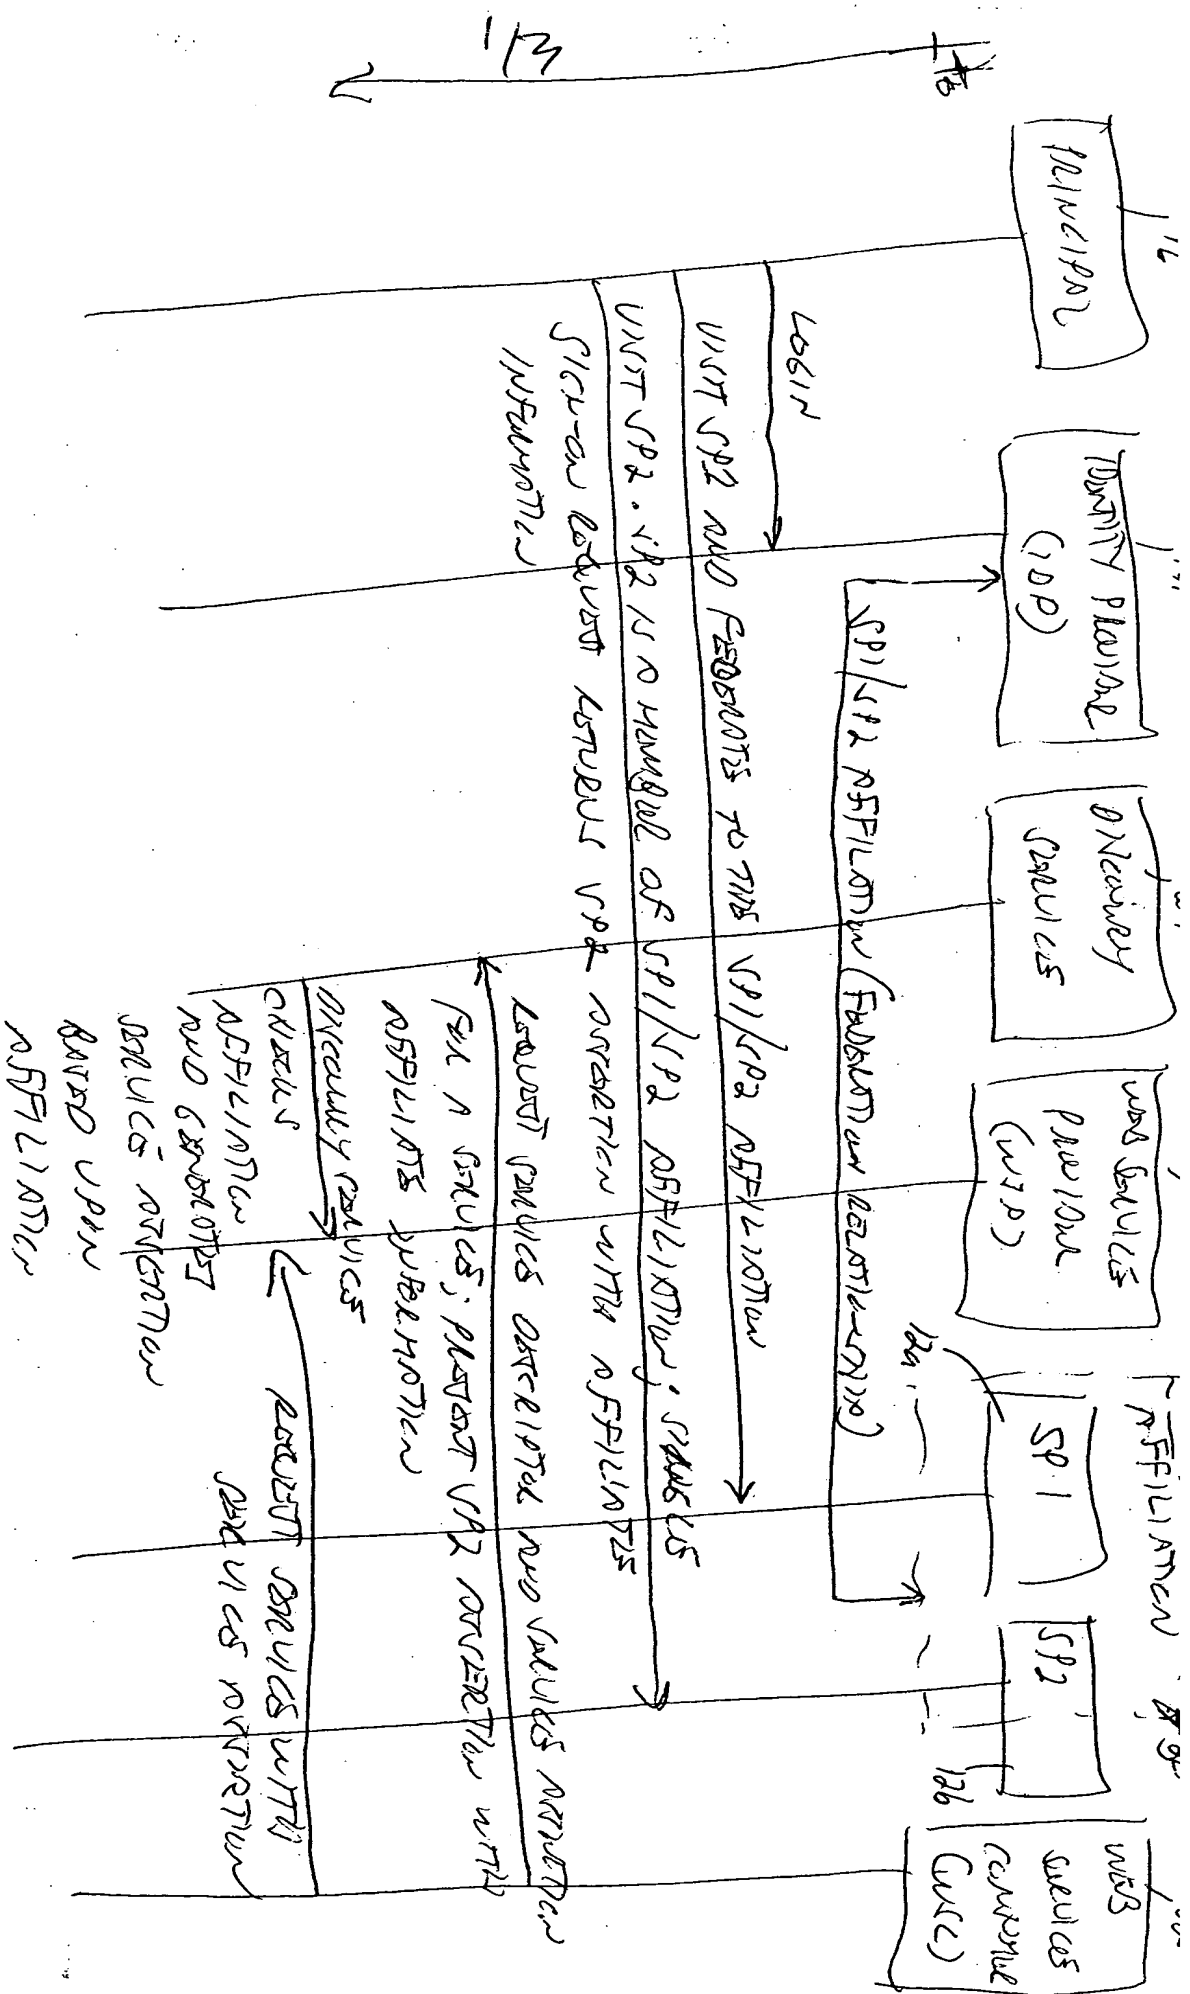 16
PRINCIPAL
IDENTITY PROVIDER
(IDP)
DISCOVERY
SERVICES
WEB SERVICES
PROVIDER
(WSP)
AFFILIATION
SP1
12a
SP2
12b
WEB
SERVICES
CONSUMER
(WSC)
SP1/SP2 AFFILIATION (FEDERATION RELATIONSHIP)
LOGIN
VISIT SP2 AND FEDERATES TO THE SP1/SP2 AFFILIATION
VISIT SP2. SP2 IS A MEMBER OF SP1/SP2 AFFILIATION; SINGLE
SIGN-ON REQUEST RETURNS SP2 ASSERTION WITH AFFILIATE
INFORMATION
REQUEST SERVICE DESCRIPTOR AND SERVICES ASSERTION
FOR A SERVICE; PRESENT SP2 ASSERTION WITH
AFFILIATE INFORMATION
DISCOVERY SERVICES
CHECKS
AFFILIATION
AND GENERATES
SERVICE ASSERTION
BASED UPON
AFFILIATION
REQUEST SERVICE WITH
SERVICES ASSERTION